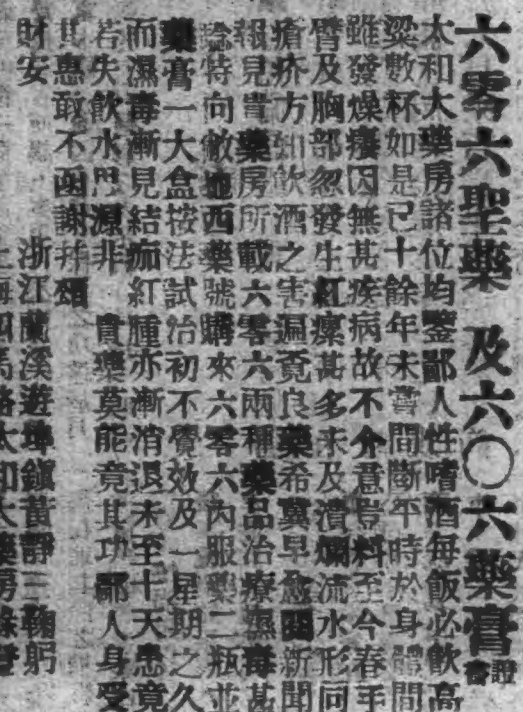 六零六聖藥 及六〇六藥膏證書
太和大藥房諸位均鑒鄙人性嗜酒每飯必飲高
粱數杯如是已十餘年未嘗間斷平時於身體間
雖發燥癢因無甚疾病故不介意豈料至今春手
臂及胸部忽發生紅瘰甚多未及潰爛流水形同
瘡疥方知飲酒之害遍覓良藥希冀早愈閱新聞
報見貴藥房所載六零六兩種藥品治療濕毒甚
特向敝地西藥號購來六零六內服藥二瓶並
藥膏一大盒按法試治初不覺效及一星期之久
而濕毒漸見結痂紅腫亦漸消退未至十天患竟
若失飲水思源非 貴藥莫能竟其功鄙人身受
其惠敢不函謝并頌
財安 浙江蘭溪遊埠鎮黃靜三鞠躬
上海四馬路太和大藥房